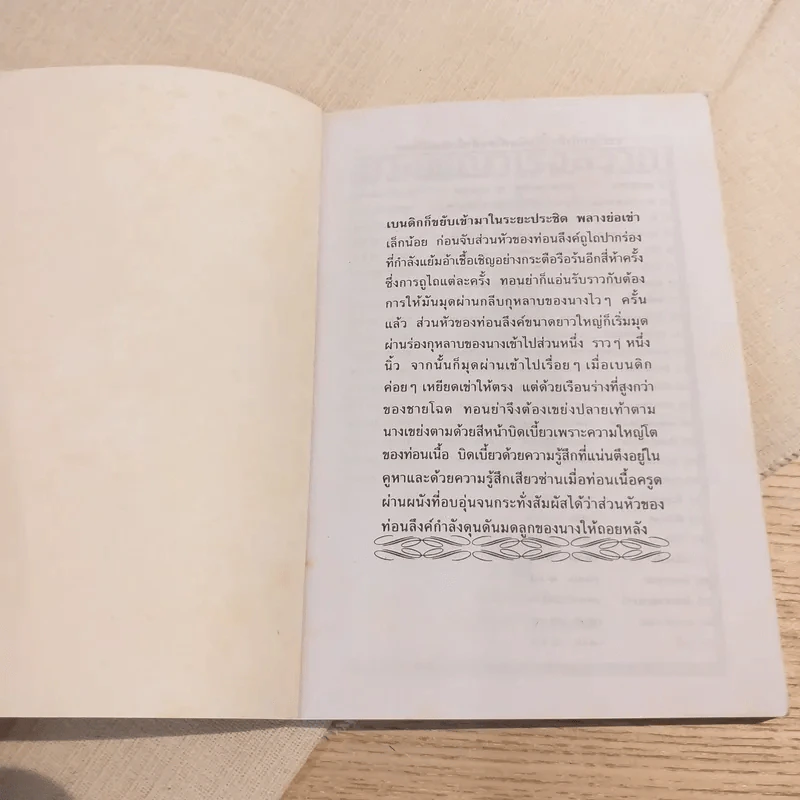 เบนดิกก็ขยับเข้ามาในระยะประชิด พลางย่อเข่า
เล็กน้อย ก่อนจับส่วนหัวของท่อนลึงค์ถูไถปากร่อง
ที่กำลังแย้มอ้าเชื้อเชิญอย่างกระตือรือร้นอีกสี่ห้าครั้ง
ซึ่งการถูไถแต่ละครั้ง ทอนย่าก็แอ่นรับราวกับต้อง
การให้มันมุดผ่านกลีบกุหลาบของนางไวๆ ครั้น
แล้ว ส่วนหัวของท่อนลึงค์ขนาดยาวใหญ่ก็เริ่มมุด
ผ่านร่องกุหลาบของนางเข้าไปส่วนหนึ่ง ราวๆ หนึ่ง
นิ้ว จากนั้นก็มุดผ่านเข้าไปเรื่อยๆ เมื่อเบนดิก
ค่อยๆ เหยียดเข่าให้ตรง แต่ด้วยเรือนร่างที่สูงกว่า
ของชายโฉด ทอนย่าจึงต้องเขย่งปลายเท้าตาม
นางเขย่งตามด้วยสีหน้าบิดเบี้ยวเพราะความใหญ่โต
ของท่อนเนื้อ บิดเบี้ยวด้วยความรู้สึกที่แน่นตึงอยู่ใน
คูหาและด้วยความรู้สึกเสียวซ่านเมื่อท่อนเนื้อครูด
ผ่านผนังที่อบอุ่นจนกระทั่งสัมผัสได้ว่าส่วนหัวของ
ท่อนลึงค์กำลังดุนดันมดลูกของนางให้ถอยหลัง